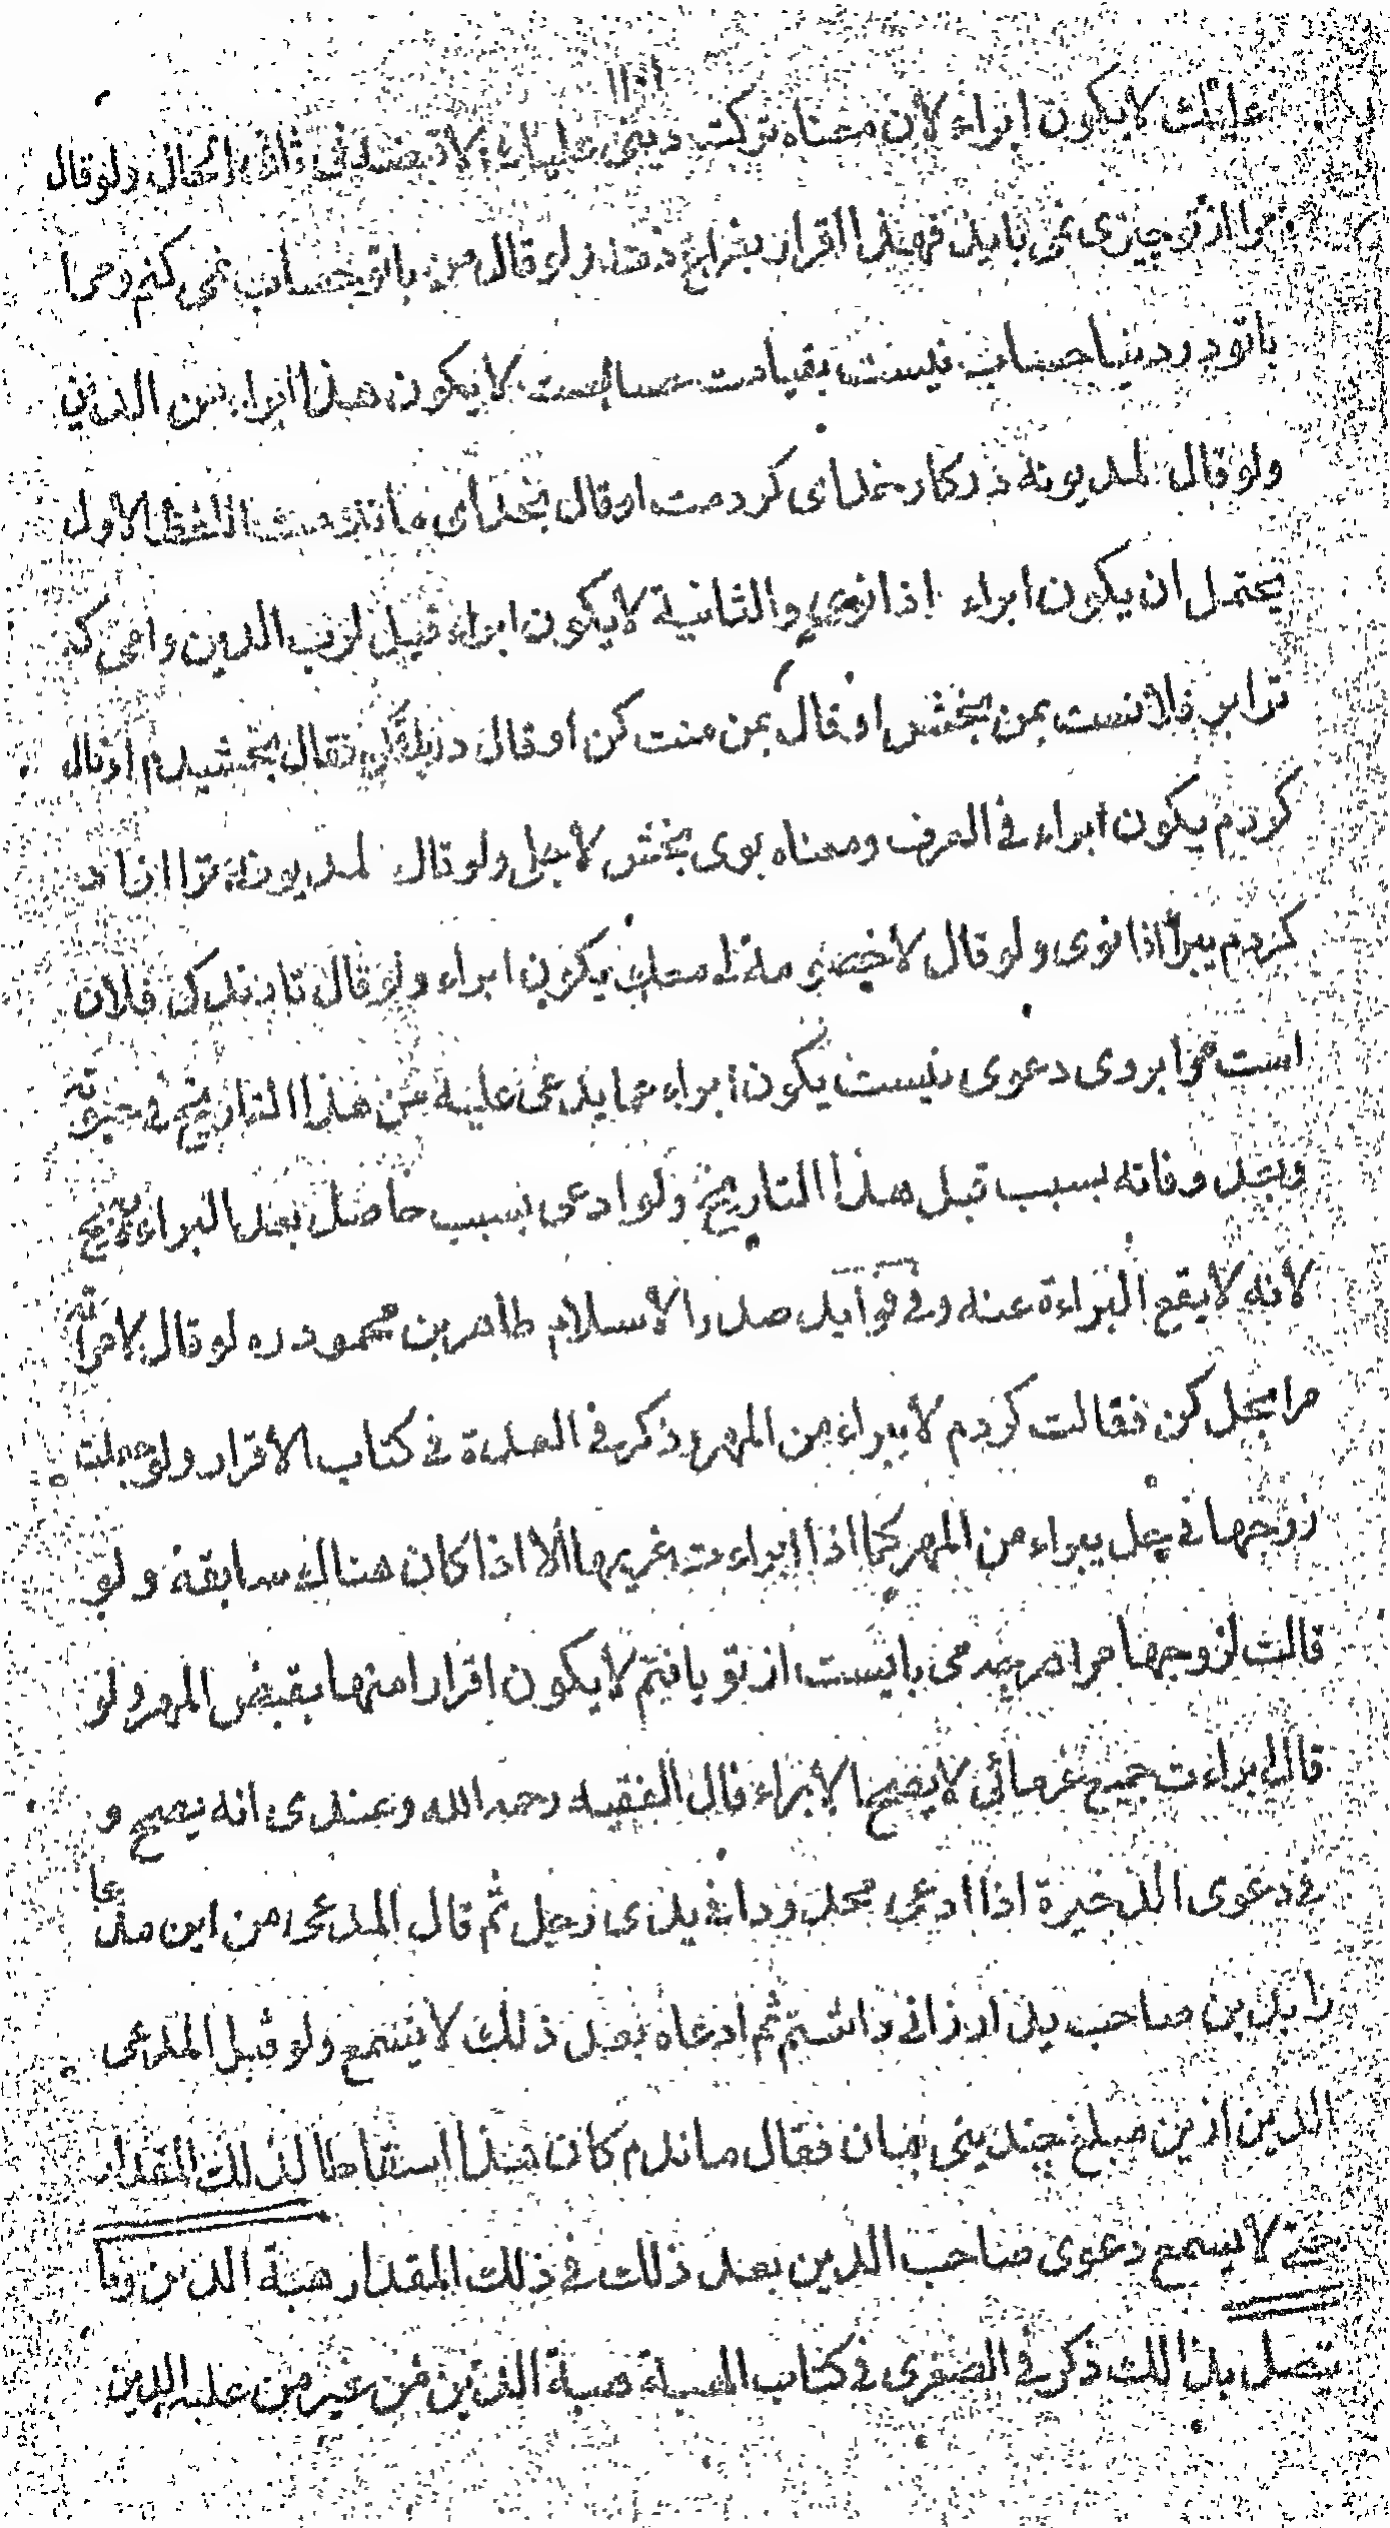 عليك لا يكون ابراء لان معناه تركت ديني عليك ولوقال
مرا از تو چیزی نمی باید فهذا اقرار بفراغ ذمته ولو قال من با تو حساب نمی کنم ومرا
باتو در دنیا حساب نیست بقیامت حسابست لا يكون هذا ابراء من الدين
ولو قال لمديونه در کار خدای کردمت او قال بخدای ماندمت اللفظ الاول
يحتمل ان يكون ابراء اذا نوى والثانية لا يكون ابراء قيل لرب الدين وامی که
ترا بر فلانست بمن بخش او قال بمن منت کن او قال فقال بخشیدم او قال
کردم يكون ابراء في العرف ومعناه بوی بخش لأجلي ولو قال لمديونه ترا ازاد
کردم يبرأ اذا نوى ولو قال لا خصومة لي معك يكون ابراء ولو قال تا زندکی فلان
است مرا بروی دعوی نیست يكون ابراء عما يدعى عليه عن هذا التاريخ في حيوته
وبعد وفاته بسبب قبل هذا التاريخ ولو ادعى بسبب حاصل بعد البراءة يصح
لانه لا يقع البراءة عنه وفي فوايد صدر الاسلام طاهر بن محمود ره لو قال لامرأته
مرا بحل کن فقالت کردم لا يبراء من المهر ذكر في العدة في كتاب الاقرار ولو جعلت
زوجها في حل يبراء من المهر كما اذا ابراءت غريمها الا اذا كان هناك سابقة ولو
قالت لزوجها مرا هرچه می بایست از تو یافتم لا يكون اقرارا منها بقبض المهر ولو
قال ابراءت جميع غرمائي لا يصح الابراء قال الفقيه رحمه الله وعندى انه يصح و
في دعوى الذخيرة اذا ادعى محدودا في يدي رجل ثم قال المدعي من این مدعا
را بدین صاحب ید ارزانی داشتم ثم ادعاه بعد ذلك لا يسمع ولو قيل لمدعى
الدين ازین مبلغ چندینی بمان فقال ماندم كان هذا اسقاطا لذلك المقدار
حتى لا يسمع دعوى صاحب الدين بعد ذلك في ذلك المقدار هبة الدين وما
يتصل بذلك ذكر في الصغرى في كتاب الهبة هبة الدين من غير من عليه الدين